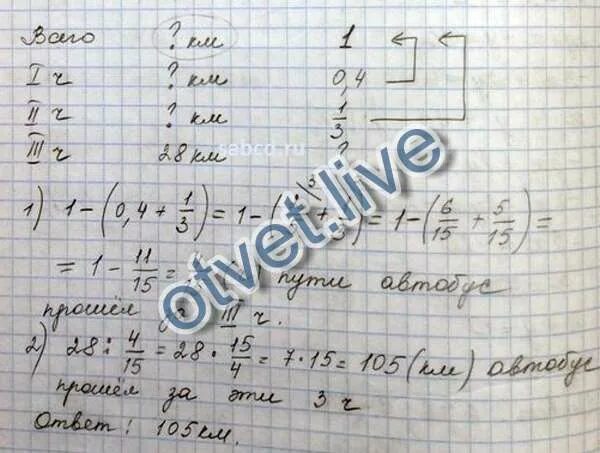 Всего ? км 1
I ч ? км 0,4
II ч ? км 1/3
sabcd.ru
III ч 28 км ?
1) 1 - (0,4 + 1/3) = 1 - ( + ) = 1 - (6/15 + 5/15) =
= 1 - 11/15 = пути автобус
прошёл за III ч.
2) 28 : 4/15 = 28 · 15/4 = 7 · 15 = 105 (км) автобус
прошёл за эти 3 ч
Ответ: 105 км.
otvet.live